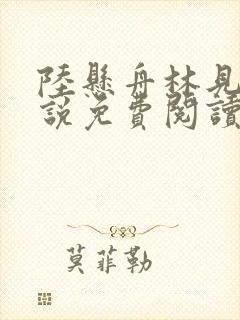 陸懸舟林見
說免費閱讀
莫菲勒